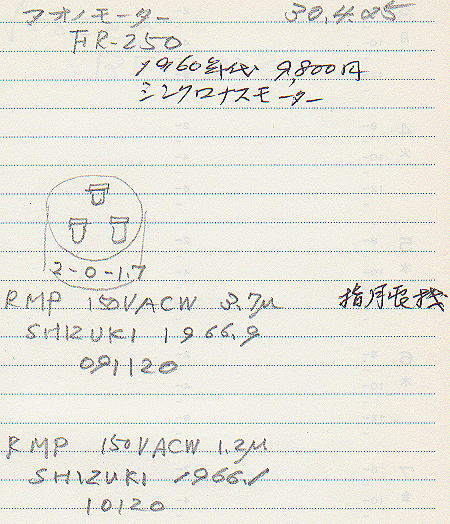 フオノモーター 30.4.25
FR-250
1960年代 9,800円
シンクロナスモーター
2-0-1.7
RMP 150VACW 3.7μ 指月電機
SHIZUKI 1966.9
091120
RMP 150VACW 1.2μ
SHIZUKI 1966.1
10120